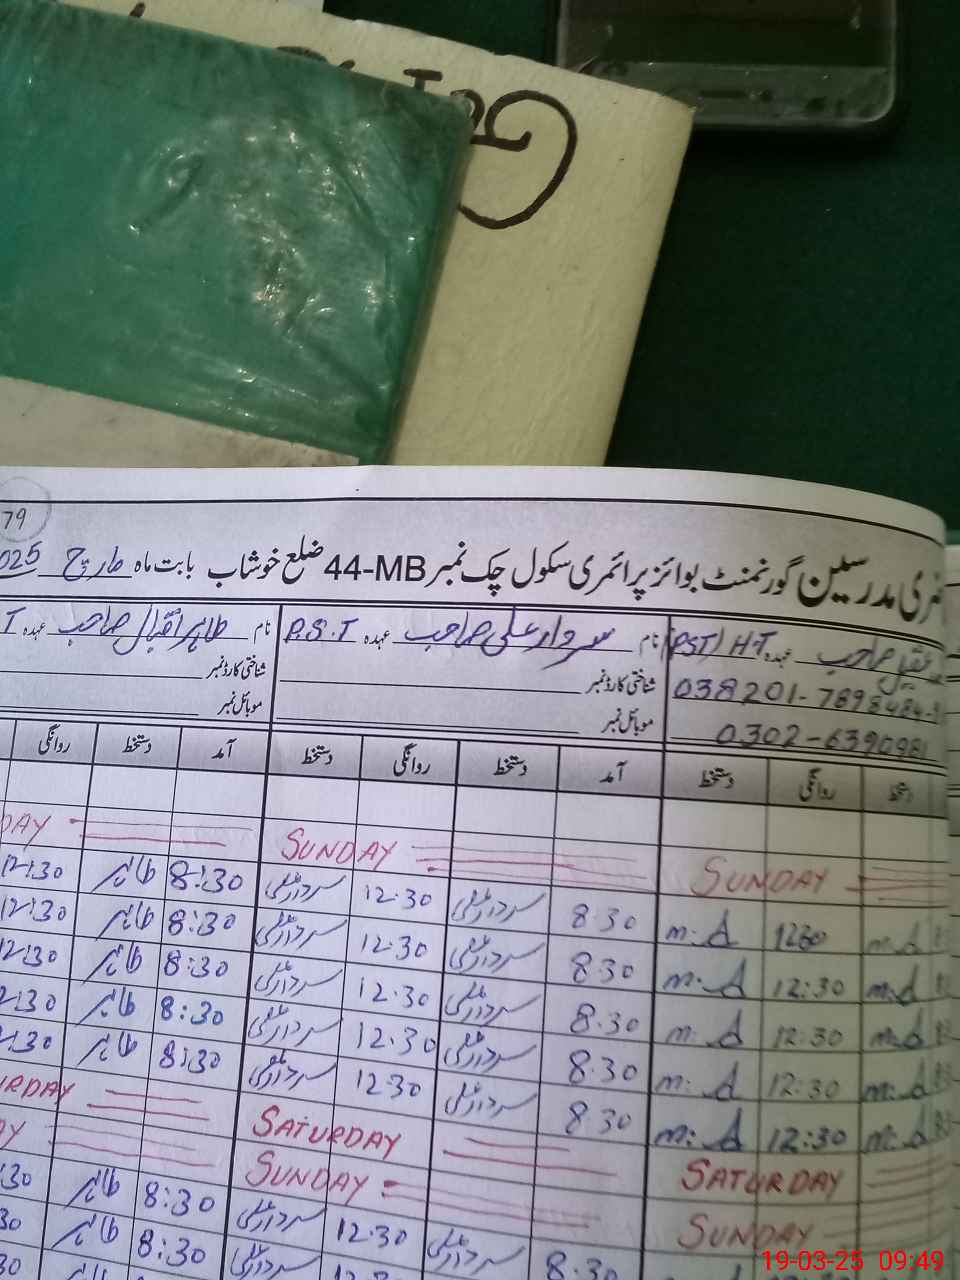 79
مدرسین گورنمنٹ بوائز پرائمری سکول چک نمبر 44-MB ضلع خوشاب بابت ماہ مارچ 025
صاحب عہدہ PST/H.T
نام سردار علی صاحب عہدہ P.S.T
نام طاہر اقبال صاحب عہدہ
شناختی کارڈ نمبر
شناختی کارڈ نمبر
موبائل نمبر
موبائل نمبر
0302-6390981
دستخط روانگی دستخط
آمد دستخط روانگی دستخط
آمد دستخط روانگی
SUNDAY SUNDAY
m.A 12:30 m.A
8.30 سردار علی 12.30 سردار علی
8:30 طاہر 12:30
m.A 12:30 m.A
8.30 سردار علی 12.30 سردار علی
8:30 طاہر 12:30
m.A 12:30 m.A
8.30 سردار علی 12.30 سردار علی
8:30 طاہر 12:30
m.A 12:30 m.A
8.30 سردار علی 12.30 سردار علی
8:30 طاہر 2:30
m.A 12:30 m.A
8.30 سردار علی 12.30 سردار علی
8:30 طاہر 2:30
SATURDAY SATURDAY
SUNDAY SUNDAY
سردار علی 12.30 سردار علی
8:30 طاہر :30
8.30
8:30 طاہر 30
19-03-25 09:49